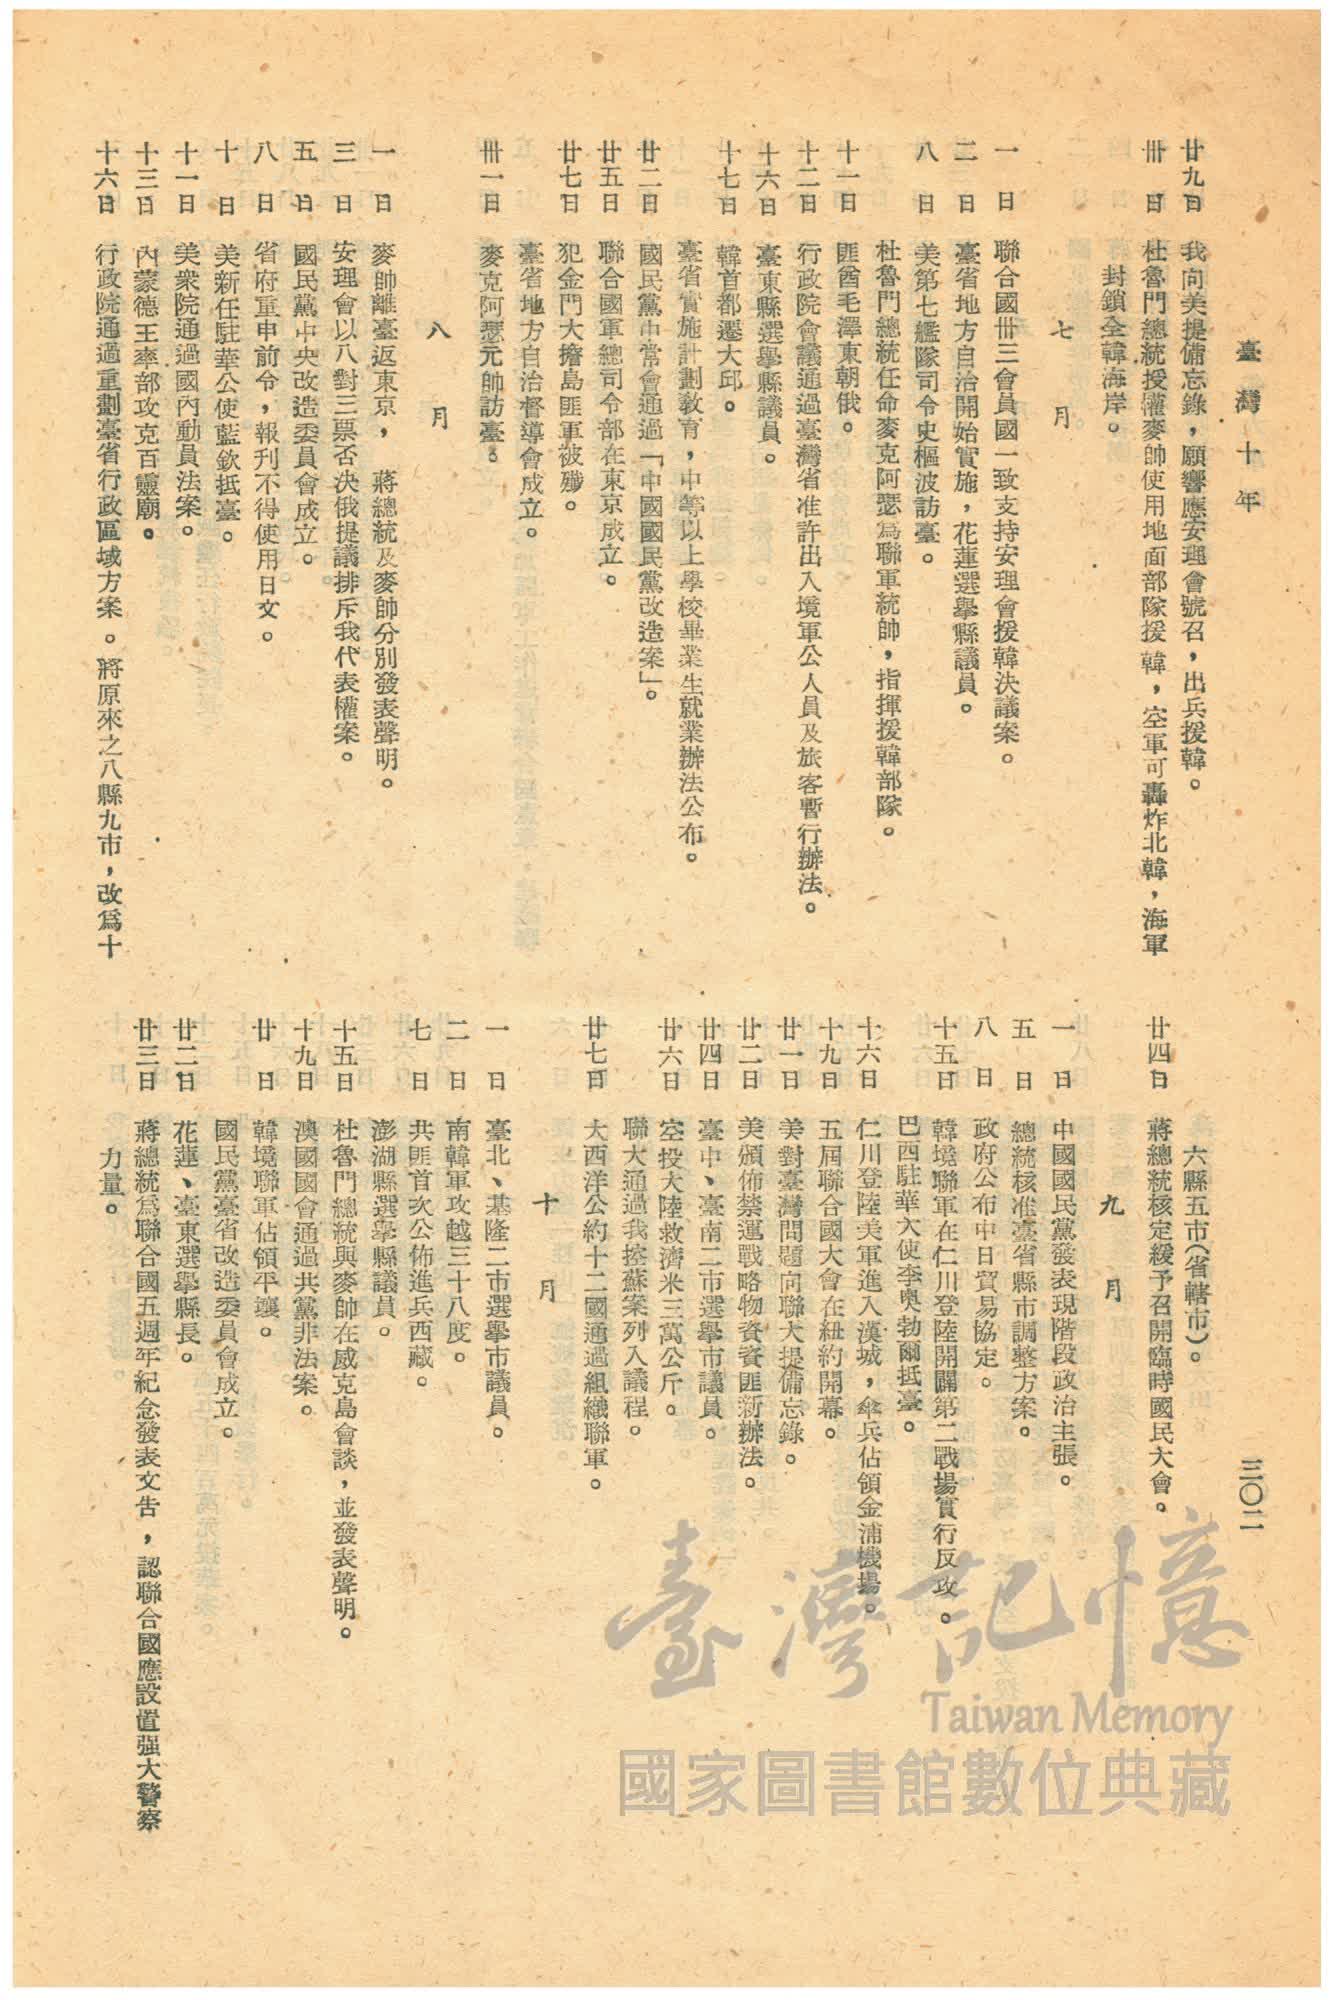 臺灣十年
三〇二
廿九日 我向美提備忘錄，願響應安理會號召，出兵援韓。
卅日 杜魯門總統授權麥帥使用地面部隊援韓，空軍可轟炸北韓，海軍
封鎖全韓海岸。
七月
一日 聯合國卅三會員國一致支持安理會援韓決議案。
二日 臺省地方自治開始實施，花蓮選舉縣議員。
八日 美第七艦隊司令史樞波訪臺。
杜魯門總統任命麥克阿瑟爲聯軍統帥，指揮援韓部隊。
十一日 匪酋毛澤東朝俄。
十二日 行政院會議通過臺灣省准許出入境軍公人員及旅客暫行辦法。
十六日 臺東縣選舉縣議員。
十七日 韓首都遷大邱。
臺省實施計劃教育，中等以上學校畢業生就業辦法公布。
廿二日 國民黨中常會通過「中國國民黨改造案」。
廿五日 聯合國軍總司令部在東京成立。
廿七日 犯金門大擔島匪軍被殲。
臺省地方自治督導會成立。
卅一日 麥克阿瑟元帥訪臺。
八月
一日 麥帥離臺返東京，蔣總統及麥帥分別發表聲明。
三日 安理會以八對三票否決俄提議排斥我代表權案。
五日 國民黨中央改造委員會成立。
八日 省府重申前令，報刊不得使用日文。
十日 美新任駐華公使藍欽抵臺。
十一日 美衆院通過國內動員法案。
十三日 內蒙德王率部攻克百靈廟。
十六日 行政院通過重劃臺省行政區域方案。將原來之八縣九市，改爲十
六縣五市（省轄市）。
廿四日 蔣總統核定緩予召開臨時國民大會。
九月
一日 中國國民黨發表現階段政治主張。
五日 總統核准臺省縣市調整方案。
八日 政府公布中日貿易協定。
十五日 韓境聯軍在仁川登陸開闢第二戰場實行反攻。
巴西駐華大使李奧勃爾抵臺。
十六日 仁川登陸美軍進入漢城，傘兵佔領金浦機場。
十九日 五屆聯合國大會在紐約開幕。
廿一日 美對臺灣問題向聯大提備忘錄。
廿二日 美頒佈禁運戰略物資資匪新辦法。
廿四日 臺中、臺南二市選舉市議員。
廿六日 空投大陸救濟米三萬公斤。
聯大通過我控蘇案列入議程。
廿七日 大西洋公約十二國通過組織聯軍。
十月
一日 臺北、基隆二市選舉市議員。
二日 南韓軍攻越三十八度。
七日 共匪首次公佈進兵西藏。
澎湖縣選舉縣議員。
十五日 杜魯門總統與麥帥在威克島會談，並發表聲明。
十九日 澳國國會通過共黨非法案。
廿日 韓境聯軍佔領平壤。
國民黨臺省改造委員會成立。
廿二日 花蓮、臺東選舉縣長。
廿三日 蔣總統爲聯合國五週年紀念發表文告，認聯合國應設置强大警察
力量。
臺灣記憶
Taiwan Memory
國家圖書館數位典藏